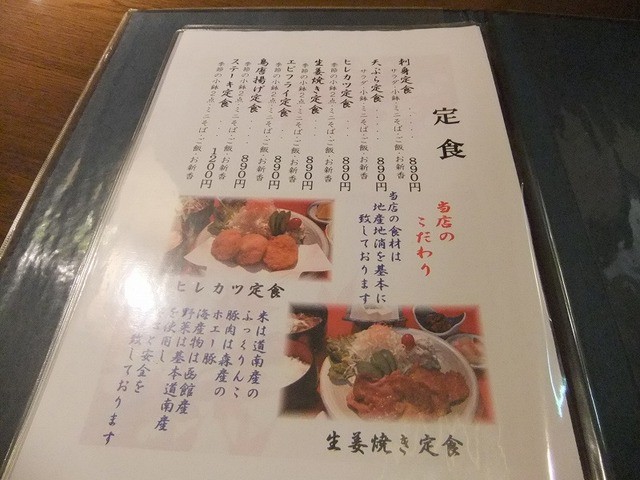 定食
刺身定食・・・・・・890円
サラダ・小鉢・ミニそば・ご飯・お新香
天ぷら定食・・・・・890円
サラダ・小鉢・ミニそば・ご飯・お新香
ヒレカツ定食・・・・890円
季節の小鉢2点・ミニそば・ご飯・お新香
生姜焼き定食・・・・890円
季節の小鉢2点・ミニそば・ご飯・お新香
エビフライ定食・・・890円
季節の小鉢2点・ミニそば・ご飯・お新香
鳥唐揚げ定食・・・・890円
季節の小鉢2点・ミニそば・ご飯・お新香
ステーキ定食・・・1200円
季節の小鉢2点・ミニそば・ご飯・お新香
当店の
こだわり
当店の食材は
地産地消を基本に
致しております
ヒレカツ定食
米は道南産の
ふっくりんこ
豚肉は森産の
ホエー豚
海産物は函館産
野菜は基本道南産
を使用し
安全を
致しております
生姜焼き定食